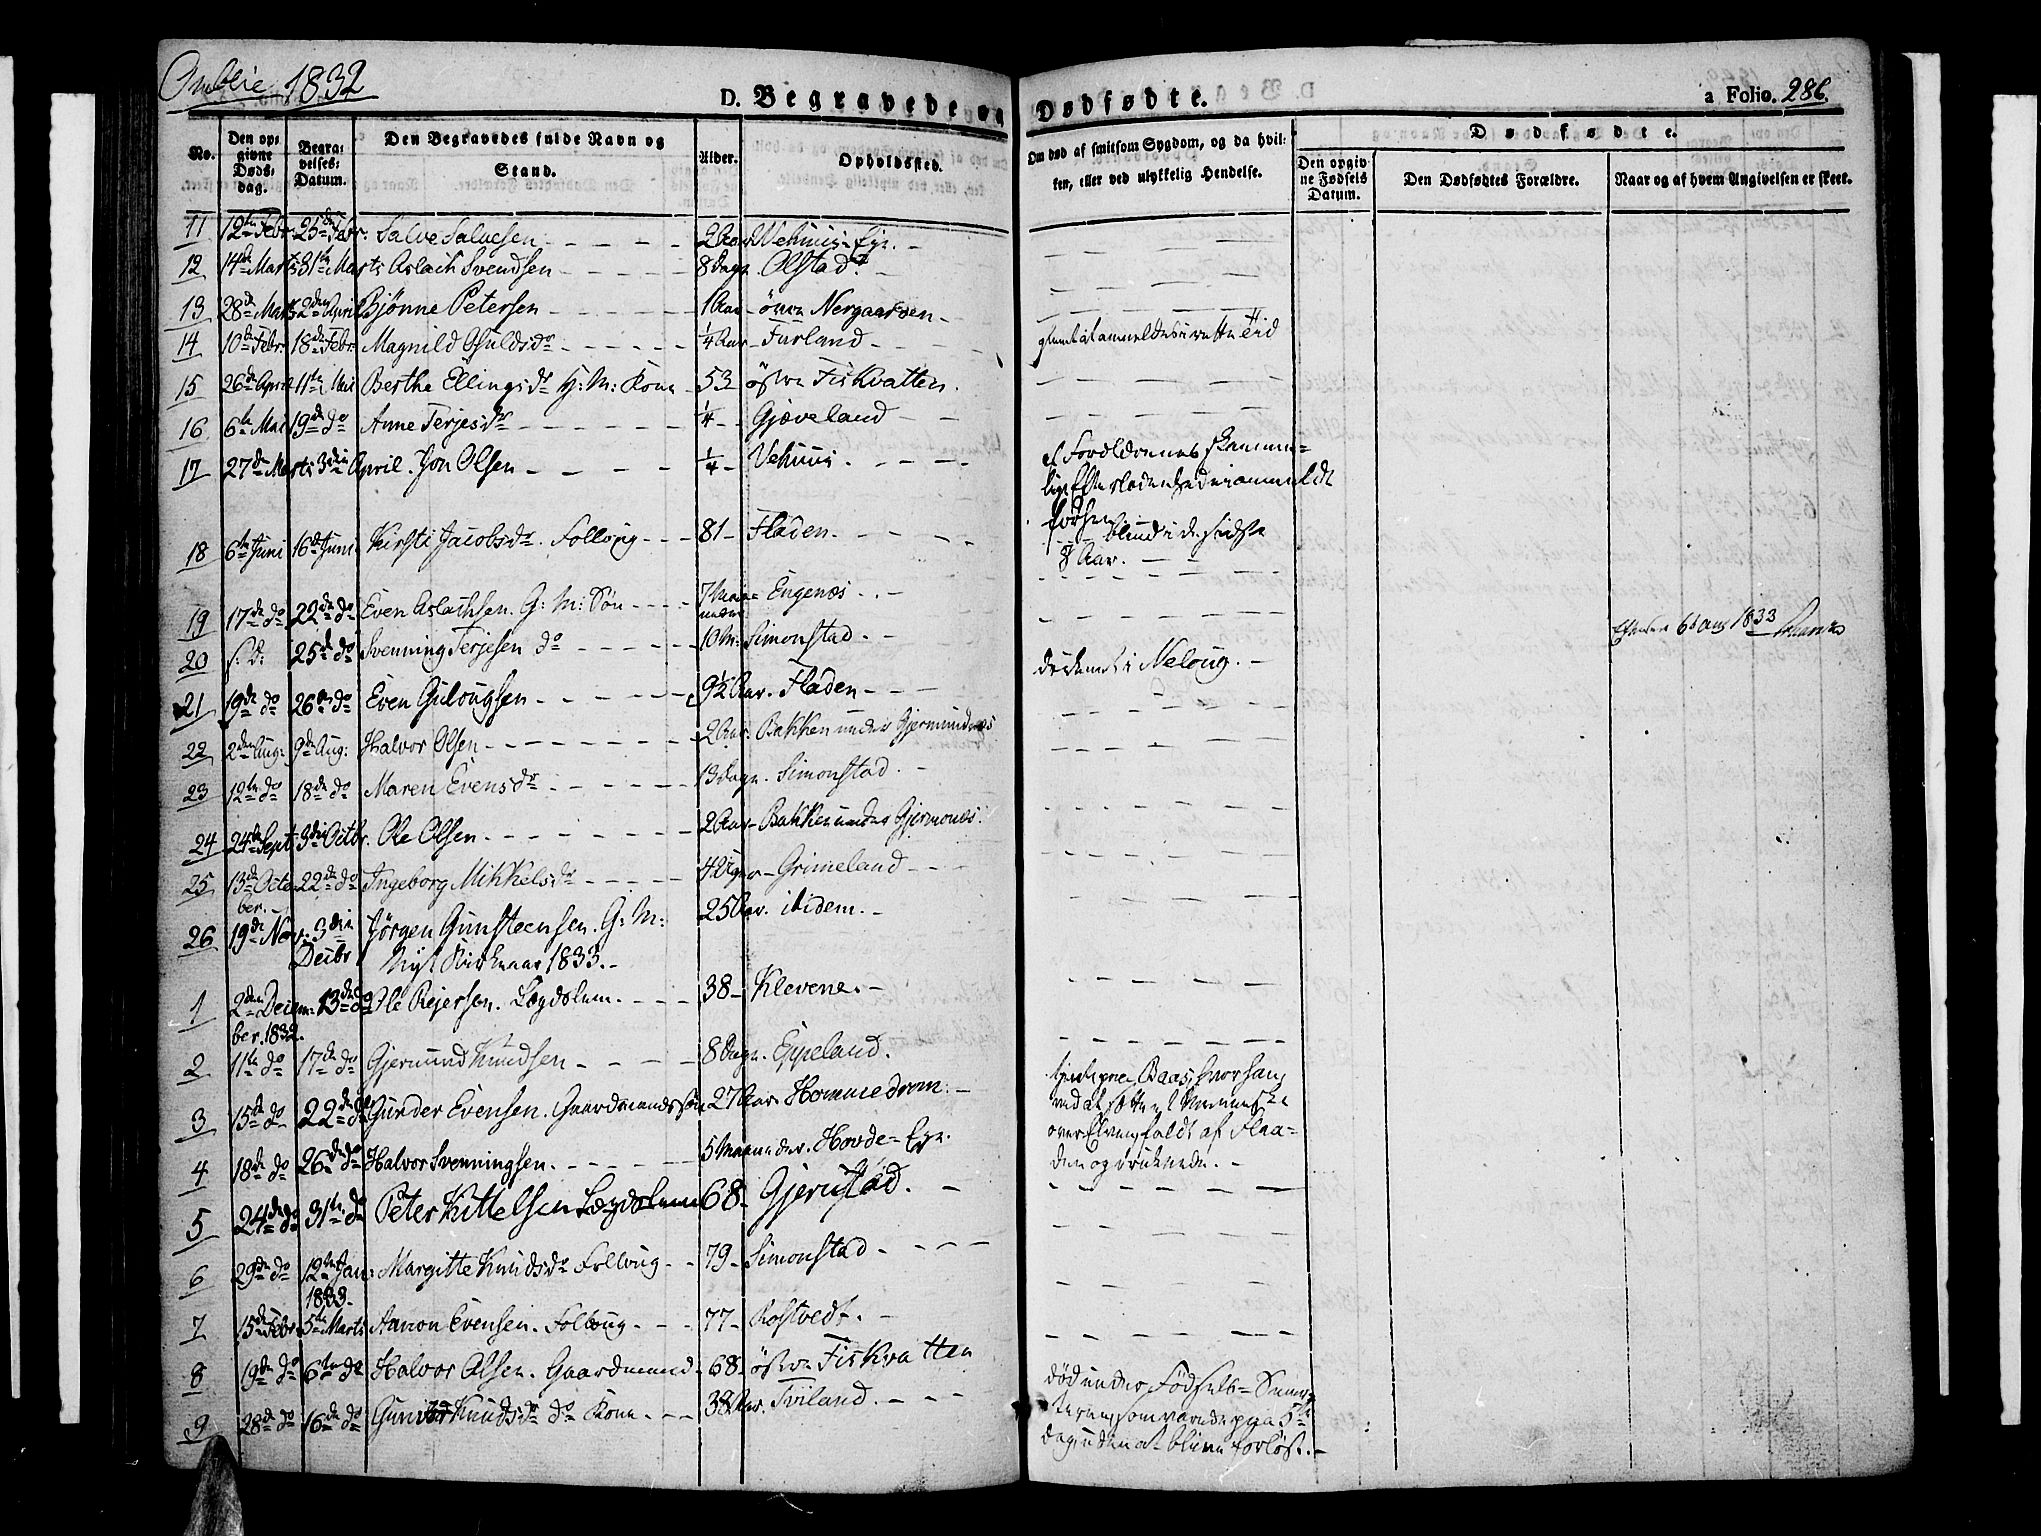 Omblie 1832
D. Begravede og Dødfødte.
a Folio. 286.
No. Den opgivne Dødsdag. Begravelses-Datum. Den Begravedes fulde Navn og Stand. Alder. Opholdssted. Om død af smitsom Sygdom, og da hvilken, eller ved ulykkelig Hendelse. Dødfødte.
Den opgivne Fødsels Datum. Den Dødfødtes Forældre. Naar og af hvem Angivelsen er skeet.
11 12te Febr. 25de Febr. Salve Salvesen 2 Aar Vehuus-Eje.
12 14de Marts 31te Marts Aslach Svendsen 8 Dage. Olstad.
13 28de Marts 2den April Bjønne Petersen 1 Aar øvre Nergaarden
14 10de Febr. 18de Febr. Magnild Osulds dr 1/4 Aar Furland
15 26de April 11te Mai Berthe Ellings dr G: M: Kone 53 østre Fiskvatten.
16 6te Mai 19de do Anne Terjes dr 1/4 Gjøveland
17 27de Marts 3die April. Jon Olsen 1/4 Vehuus.
af Forældrenes
18 6te Juni 16de Juni Kirsti Jacobs dr. Folloug 81 Fladen. blind i de sidste
8 Aar.
19 17de do 22de do Even Aslachsen. G: M: Søn 7 Maaneder Engenæs
20 s: d: 25de do Svenning Terjesen do 10 M: Simonstad.
1833
21 19de do 26de do Even Gulougsen 9½ Aar. Fladen druknet i Neloug.
22 2den Aug: 9de Aug: Halvor Olsen 2 Aar. Bakken under Gjermundnæs
23 12te do 18de do Maren Evens dr 13 Dage. Simonstad.
24 24de Sept. 3die Octbr. Ole Olsen 2 Aar Bakken under Gjermonæs.
25 13de October. 22de do Ingeborg Mikkels dr 4 Uger Grimeland
26 19de Nov. 3die Decbr Jørgen Gunsteensen. G: M: 25 Aar. ibidem.
Nyt Kirkeaar 1833.
1 2den December 1832. 13de do Ole Rejersen. Lægdslem. 38 Klevene.
2 11te do 17de do Gjermund Knudsen 8 Dage. Eppeland.
3 15de do 22de do Gunder Evensen. Gaardmands søn 27 Aar Hommedrom.
Baas, hvor han
ved at sætte et Menneske
over Elven, faldt af Flaa-
den og druknede.
4 18de do 26de do Halvor Svenningsen. 5 Maaneder. Hovde-Eje.
5 24de do 31te do Peter Kittelsen Lægdslem 68 Gjerustad.
6 29de do 12te Jan: 1833. Margitte Knuds dr Folloug 79 Simonstad
7 15de Febr. 5te Marts Aanon Evensen. Folloug 77 Rostvedt.
8 19de do 6te do Halvor Olsen. Gaardmand 68 østre Fiskvatten
9 28de do 16de do Gunvor Knuds dr do Kone 38 Aar. Tveland.
død under Fødsels-Smer-
terne, som varede paa 5te
dag, uden at blive forløst.